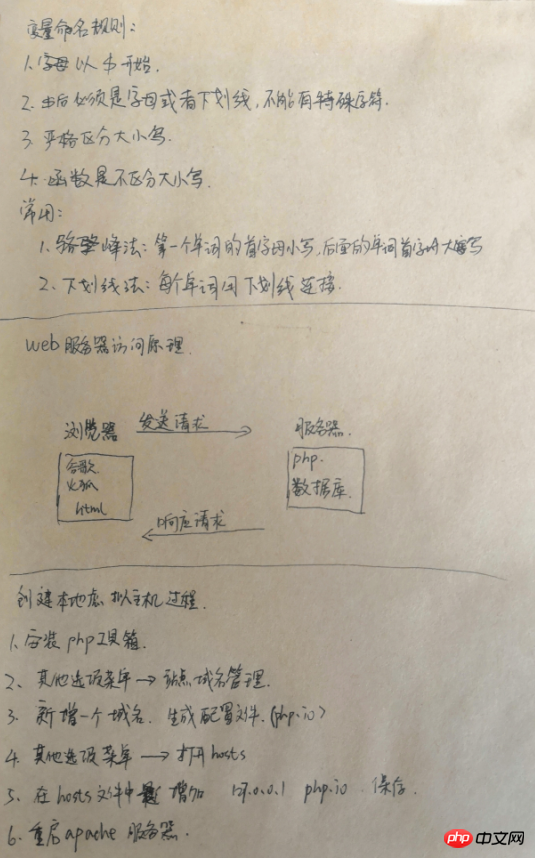 变量命名规则:
1.字母以$开始.
2.$后必须是字母或者下划线,不能有特殊字符.
3.严格区分大小写.
4.函数是不区分大小写.
常用:
1.骆驼峰法:第一个单词的首字母小写,后面的单词首字母大写
2.下划线法:每个单词用下划线连接.
web服务器访问原理.
浏览器 发送请求 服务器.
谷歌 php.
火狐 数据库.
html
响应请求
创建本地虚拟主机过程.
1.安装php工具箱.
2.其他选项菜单→站点域名管理.
3.新增一个域名.生成配置文件.(php.io)
4.其他选项菜单→打开hosts
5.在hosts文件中 增加 127.0.0.1 php.io 保存.
6.重启apache服务器.
php 中文网